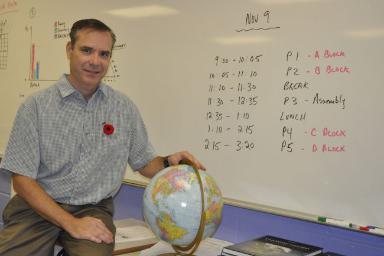 Nov 9
9:00 - 10:05 P1 - A BLOCK
10:05 - 11:10 P2 - B BLOCK
11:10 - 11:30 BREAK
11:30 - 12:35 P3 - Assembly
12:35 - 1:10 LUNCH
1:10 - 2:15 P4 - C BLOCK
2:15 - 3:20 P5 - D BLOCK